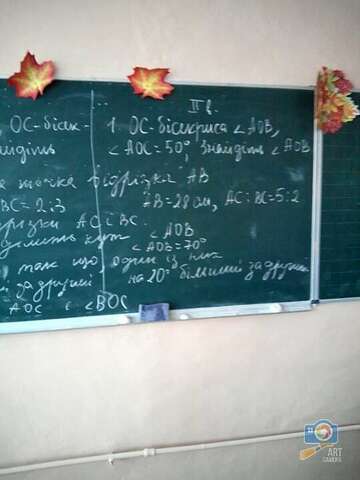 II в.
, ОС-бісек-
1. ОС-бісектриса ∠АОВ,
найдіть
∠АОС=50°, знайдіть ∠АОВ
точка відрізка АВ
ВС=2:3
АВ=28 см, АС:ВС=5:2
АС і ВС.
кут ∠АОВ
∠АОВ=70°
так що, один із них
на 20° більший за другий
за другий
АОС і ∠ВОС
ART
CAMERA